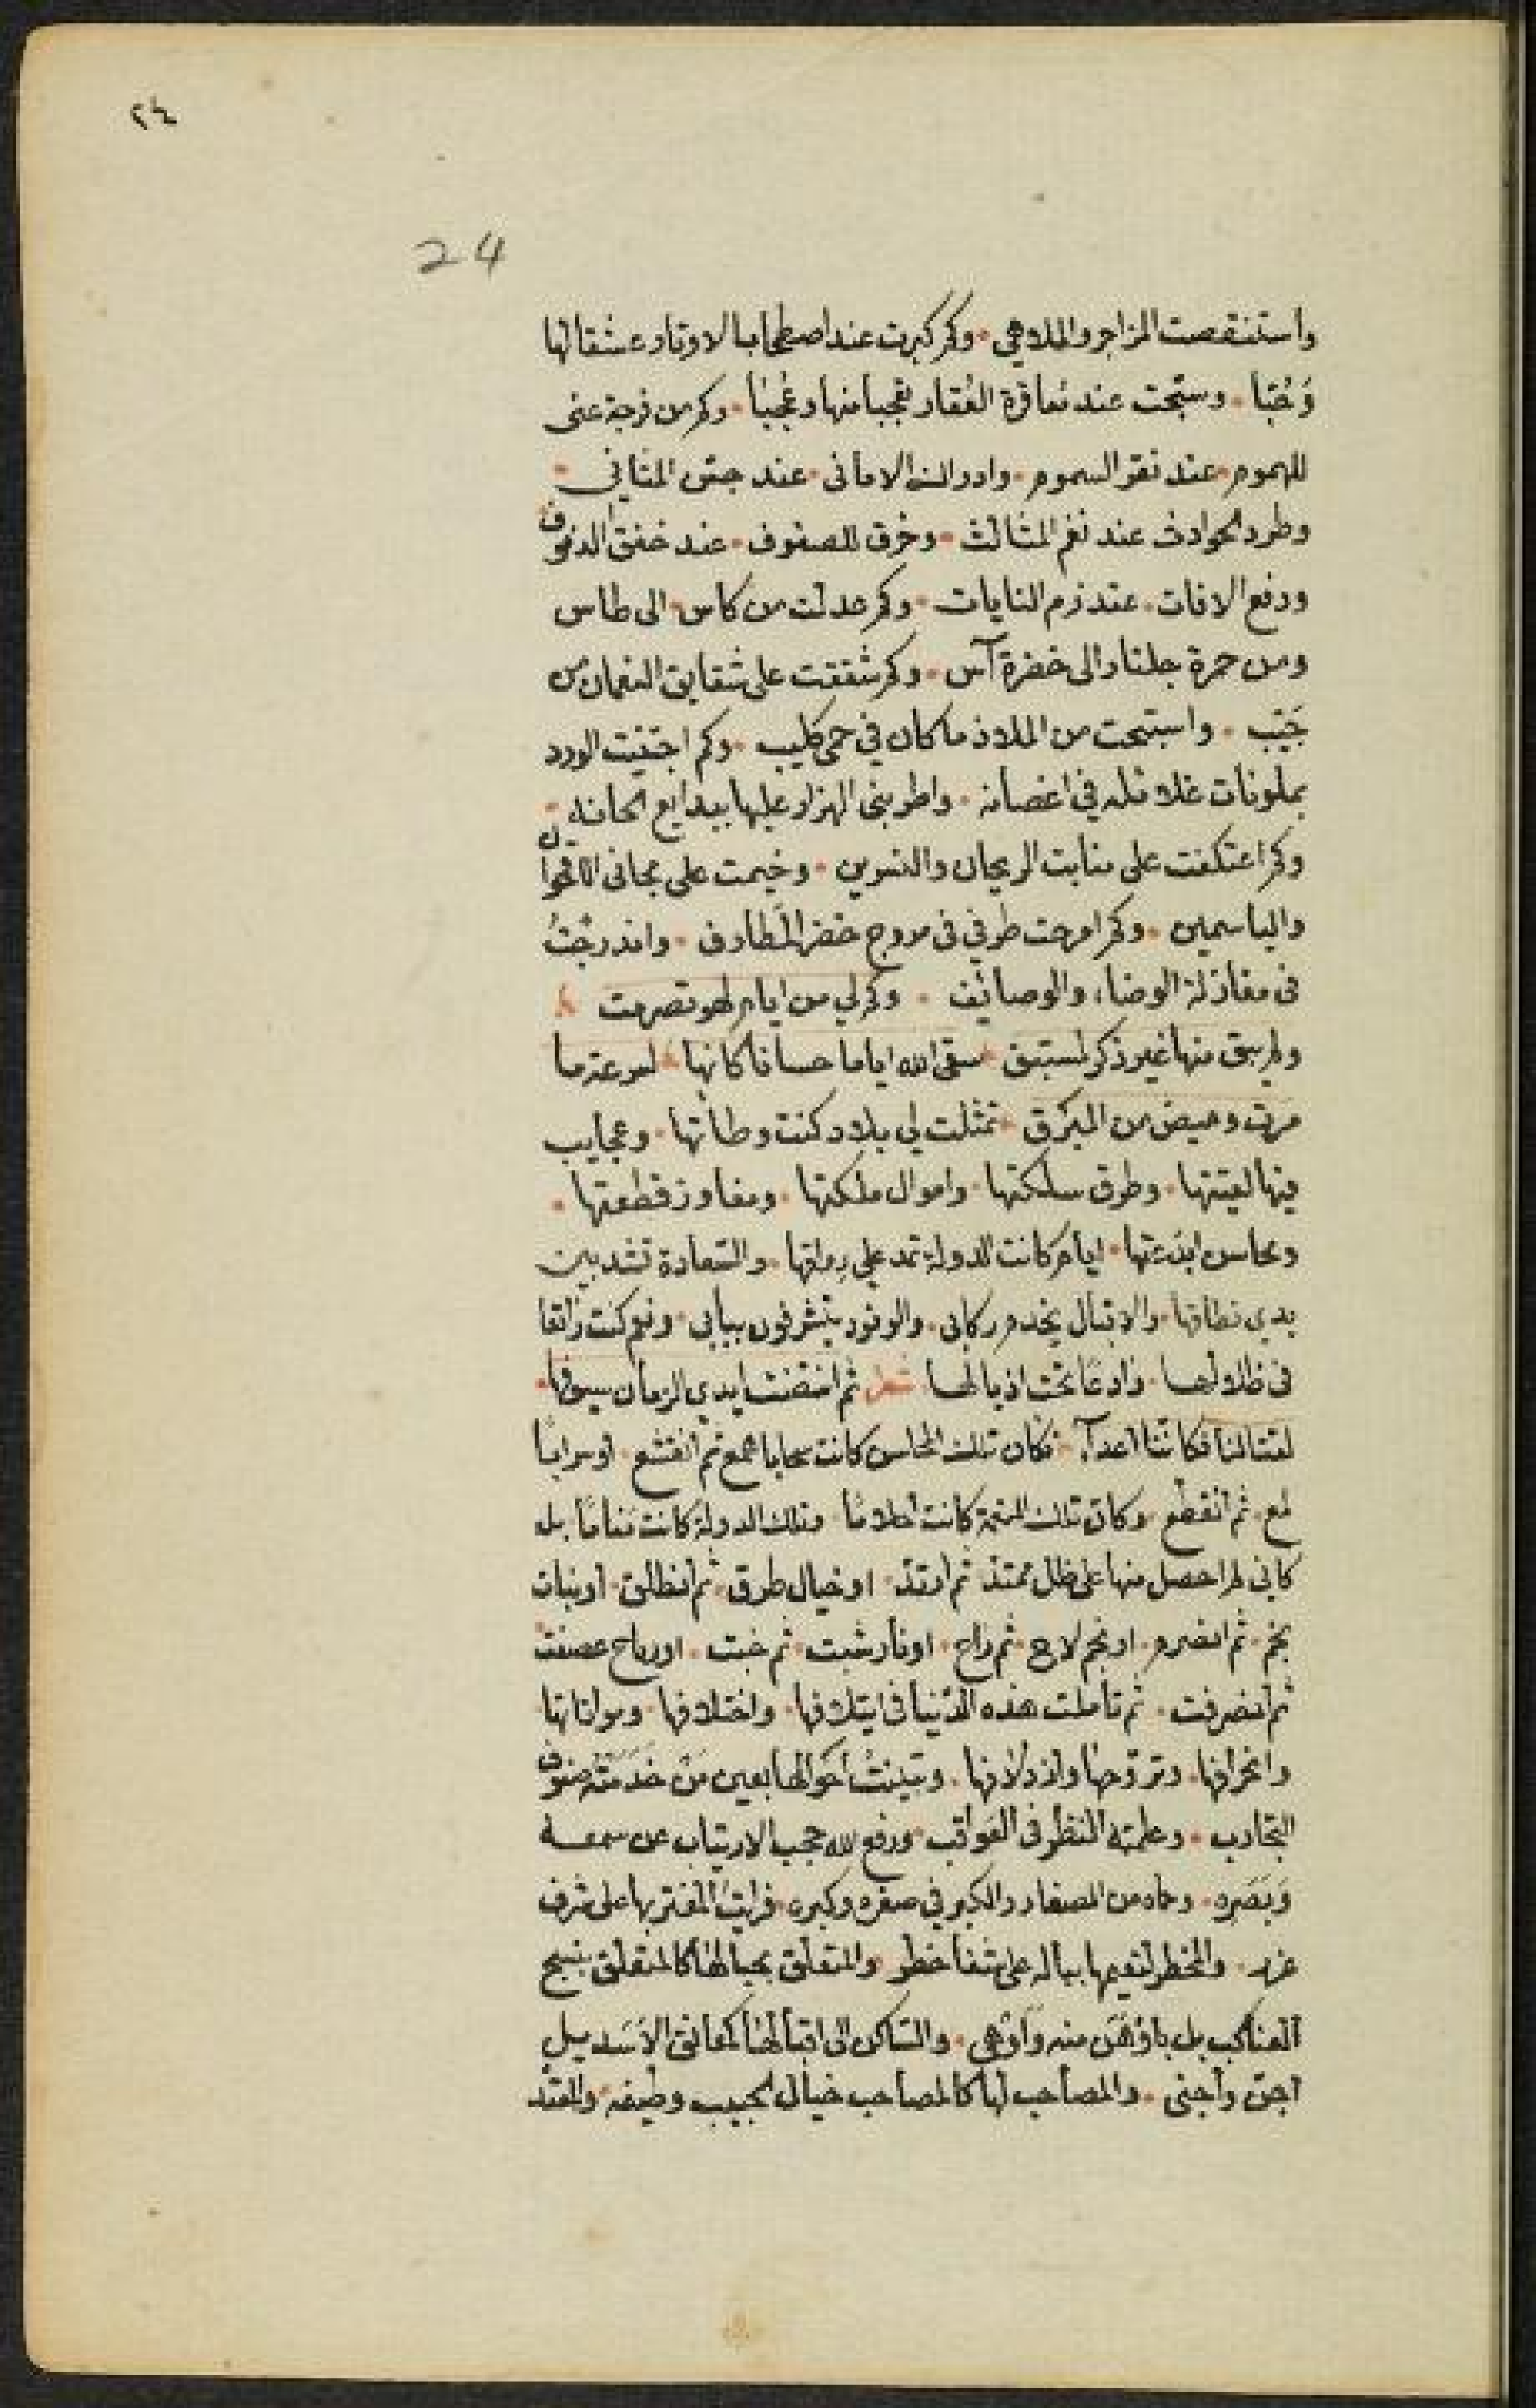 ٢٤
24
واستنقصت المزاجر والملاهي • وكم كبرت عند اصطحاب الاوتار عشقا لها
وحُبّا • وسبّحت عند معاقرة العُقار تعجبا منها وعُجبًا • وكم من فرجة عنى
للهموم • عند نقر السموم • وادراك الامانى • عند جسّ المثاني •
وطرد الحوادث عند نغم المثالث • وخرق للصفوف • عند خفق الدفوف
ودفع الافات • عند زمر النايات • وكم عدلت من كاس • الى طاس
ومن حمرة جلنار الى خضرة آس • وكم شققت على شقايق النعمان من
جَيْب • واستبحت من الملاذ ما كان في حمى كليب • وكم اجتنيت الورد
بملونات غلائله في اغصانه • واطربنى الهزار عليها ببدايع الحانه •
وكم اعتكفت على منابت الريحان والنسرين • وخيمت على مجانى الاقحوان
والياسمين • وكم امرحت طرفي فى مروج خضر المطارف • واندرجتُ
فى مغازلة الوضاء والوصائف • وكم لي من ايام لهو تصرمت
ولم يبق منها غير ذكر لمستبق سقى الله اياما حسانا كانها لسرعة ما
مرت وميض من البَرْق • تمثلت لي بلاد كنت وطأتها • وعجايب
فيها لقيتها • وطرق سلكتها • واموال ملكتها • ومفاوز قطعتها •
ومحاسن ابتدعتها • ايام كانت الدولة تمد علي رواقها • والسّعادة تشد بين
يدي نطاقها • والاقبال يخدم ركابى • والوفود يتشرفون ببابى • ونعم كنت راتعا
فى ظلالها • وادعًا تحت اذيالها شعر ثم انتضت ايدي الزمان سيوفها •
لقتالنا فكاننا اعدآ • فكان تلك المحاسن كانت سحابا همع ثم انقشع • او سرابًا
لمع • ثم انقطع • وكان تلك المتعة كانت احلامًا وتلك الدولة كانت منامًا بل
كانى لم احصل منها على ظل ممتد ثم ارتد • او خيال طرق • ثم انطلق • او نبات
نجم • ثم انصرم • او نجم لاح • ثم راح • او نار شبت • ثم خبت • او رياح عصفت
ثم انصرفت • ثم تأملت هذه الدّنيا فى ايتلافها • واختلافها • وموافاتها
وانحرافها • وتروّحها وازدلافها • وتبينتُ أحوالها بعين مَن خَدَمَتْه صنوف
التجارب • وعلمته النظر فى العواقب • ورفع الله حجب الارتياب عن سمعه
وَبَصَرِه • وحماه من الصغار والكبر في صغره وكبره • فرايتُ المغتر بها على شرف
غرر • والمخطر لنعيمها بباله على شفا خطر • والمتعلق بحبالها كالمتعلق بنسج
العناكب بل بأوْهَن منه وَأوْهى • والسّاكن الى اقبالها كمعانق الاَسَد بل
اجنّ وأجنى • والمصاحب لها كالمصاحب خيال الحبيب وطيفه • والمعتد